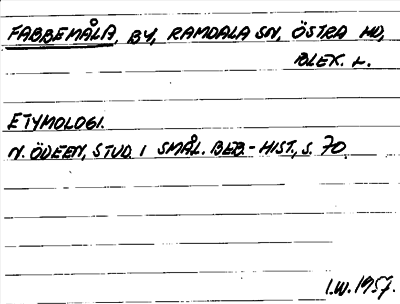 FABBEMÅLA, BY, RAMDALA SN, ÖSTRA HD,
BLEK. L.
ETYMOLOGI.
N. ÖDEEN, STUD. I SMÅL. BEB.-HIST., S. 70.
I.W. 1957.